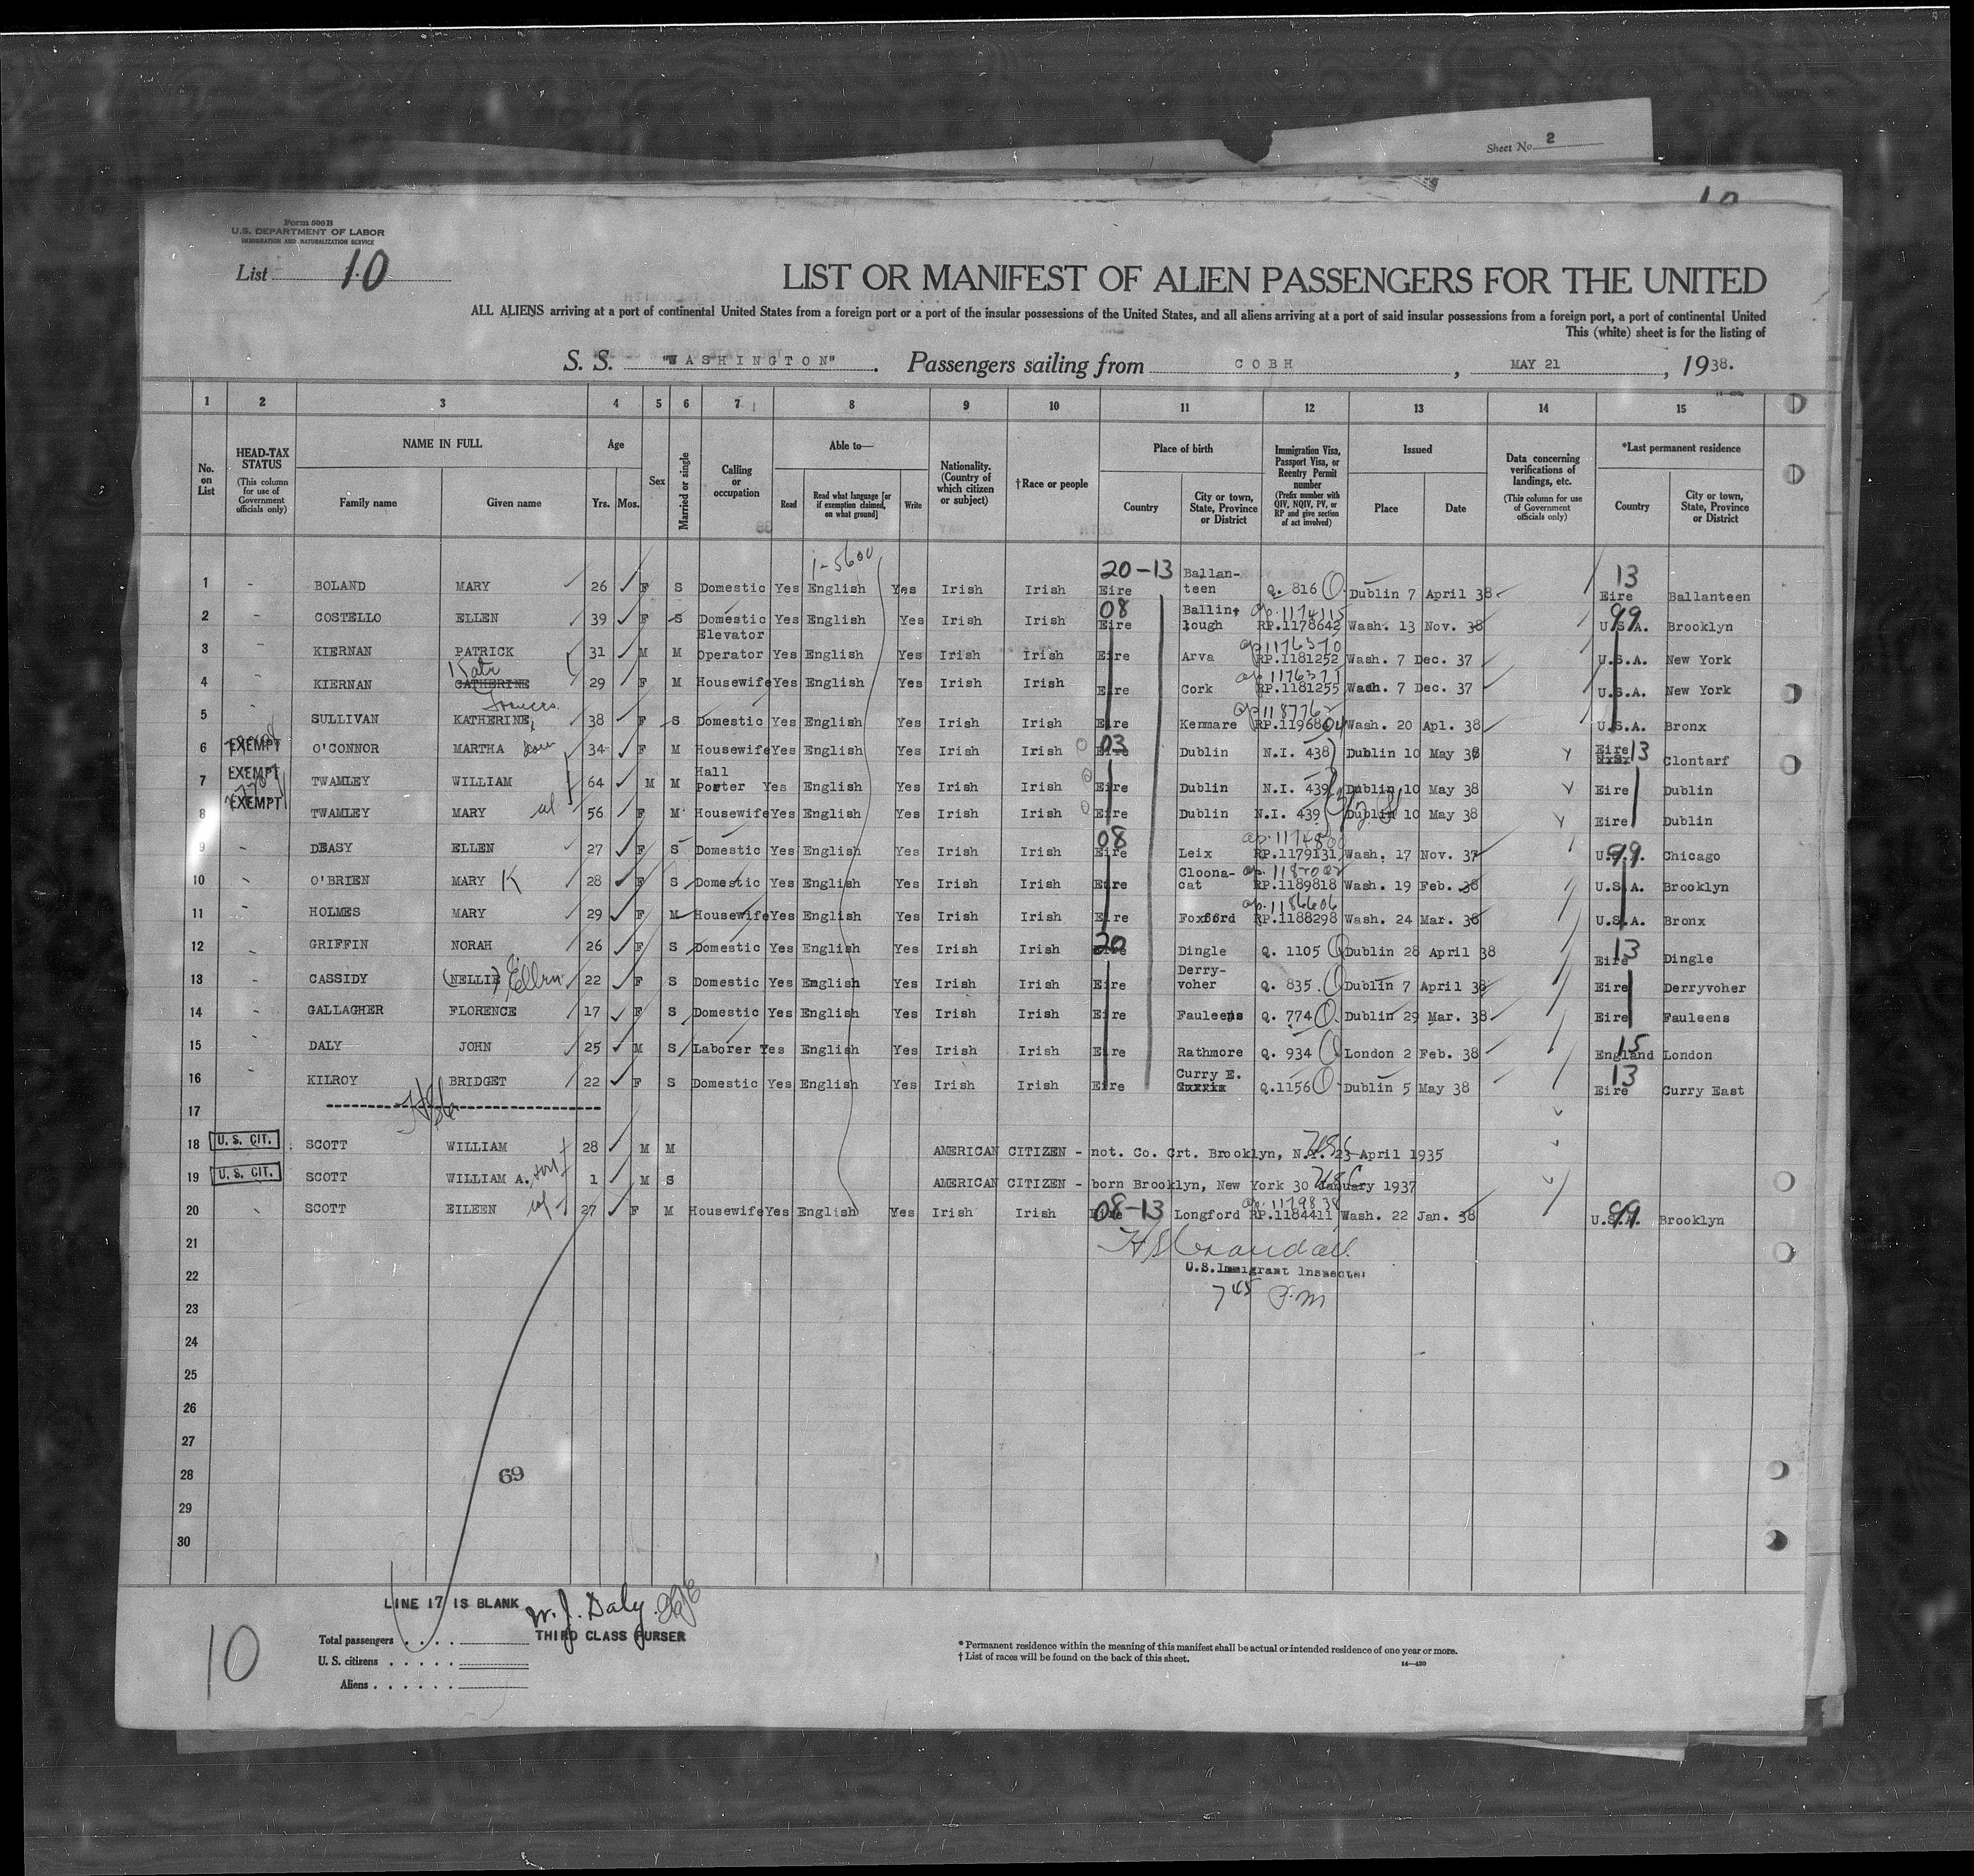 Sheet No. 2
10
Form 500 B
U.S. DEPARTMENT OF LABOR
IMMIGRATION AND NATURALIZATION SERVICE
List 10
LIST OR MANIFEST OF ALIEN PASSENGERS FOR THE UNITED
ALL ALIENS arriving at a port of continental United States from a foreign port or a port of the insular possessions of the United States, and all aliens arriving at a port of said insular possessions from a foreign port, a port of continental United
This (white) sheet is for the listing of
S. S. "WASHINGTON". Passengers sailing from COBH, MAY 21, 1938.
1 2 3 4 5 6 7 8 9 10 11 12 13 14 15
No. on List
HEAD-TAX STATUS (This column for use of Government officials only)
NAME IN FULL
Family name Given name
Age
Yrs. Mos.
Sex
Married or single
Calling or occupation
Able to—
Read Read what language [or if exemption claimed, on what ground] Write
Nationality. (Country of which citizen or subject)
†Race or people
Place of birth
Country City or town, State, Province or District
Immigration Visa, Passport Visa, or Reentry Permit number (Prefix number with QIV, NQIV, PV, or RP and give section of act involved)
Issued
Place Date
Data concerning verifications of landings, etc. (This column for use of Government officials only)
*Last permanent residence
Country City or town, State, Province or District
1-5600
1 - BOLAND MARY 26 F S Domestic Yes English Yes Irish Irish 20-13 Eire Ballan-teen Q. 816 Dublin 7 April 38 13 Eire Ballanteen
2 - COSTELLO ELLEN 39 F S Domestic Yes English Yes Irish Irish 08 Eire Ballin-lough ap. 1174115 RP.1178642 Wash. 13 Nov. 38 99 U.S.A. Brooklyn
3 - KIERNAN PATRICK 31 M M Elevator Operator Yes English Yes Irish Irish Eire Arva ap 1176370 RP.1181252 Wash. 7 Dec. 37 U.S.A. New York
4 - KIERNAN CATHERINE Kate 29 F M Housewife Yes English Yes Irish Irish Eire Cork ap 1176371 RP.1181255 Wash. 7 Dec. 37 U.S.A. New York
5 - SULLIVAN KATHERINE Frances 38 F S Domestic Yes English Yes Irish Irish Eire Kenmare Wash. 20 Apl. 38 U.S.A. Bronx
6 EXEMPT O'CONNOR MARTHA 34 F M Housewife Yes English Yes Irish Irish 03 Eire Dublin N.I. 438 Dublin 10 May 38 Eire 13 Clontarf
7 EXEMPT TWAMLEY WILLIAM 64 M M Hall Porter Yes English Yes Irish Irish Eire Dublin N.I. 439 Dublin 10 May 38 Eire Dublin
8 EXEMPT TWAMLEY MARY 56 F M Housewife Yes English Yes Irish Irish Eire Dublin N.I. 439 Dublin 10 May 38 Eire Dublin
9 - DEASY ELLEN 27 F S Domestic Yes English Yes Irish Irish 08 Eire Leix RP.1179131 Wash. 17 Nov. 37 99 U.S.A. Chicago
10 - O'BRIEN MARY K 28 F S Domestic Yes English Yes Irish Irish Eire Cloona-cat RP.1189818 Wash. 19 Feb. 38 U.S.A. Brooklyn
11 - HOLMES MARY 29 F M Housewife Yes English Yes Irish Irish Eire Foxford ap. 1186606 RP.1188298 Wash. 24 Mar. 38 U.S.A. Bronx
12 - GRIFFIN NORAH 26 F S Domestic Yes English Yes Irish Irish 20 Eire Dingle Q. 1105 Dublin 28 April 38 13 Eire Dingle
13 - CASSIDY (NELLIE) Ellen 22 F S Domestic Yes English Yes Irish Irish Eire Derry-voher Q. 835. Dublin 7 April 38 Eire Derryvoher
14 - GALLAGHER FLORENCE 17 F S Domestic Yes English Yes Irish Irish Eire Fauleens Q. 774 Dublin 29 Mar. 38 Eire Fauleens
15 - DALY JOHN 25 M S Laborer Yes English Yes Irish Irish Eire Rathmore Q. 934 London 2 Feb. 38 15 England London
16 - KILROY BRIDGET 22 F S Domestic Yes English Yes Irish Irish Eire Curry E. Q.1156 Dublin 5 May 38 13 Eire Curry East
17
18 U. S. CIT. SCOTT WILLIAM 28 M M AMERICAN CITIZEN - not. Co. Crt. Brooklyn, N.Y. 23 April 1935
19 U. S. CIT. SCOTT WILLIAM A. son 1 M S AMERICAN CITIZEN - born Brooklyn, New York 30 January 1937
20 SCOTT EILEEN wf 27 F M Housewife Yes English Yes Irish Irish 08-13 Eire Longford RP.1184411 Wash. 22 Jan. 38 99 U.S.A. Brooklyn
21 H S Crandall
22 U.S. Immigrant Inspector
23 7 45 P.M
24
25
26
27
28 69
29
30
LINE 17 IS BLANK W. J. Daly
THIRD CLASS PURSER
10
Total passengers . . . .
U. S. citizens . . . . .
Aliens . . . . . .
* Permanent residence within the meaning of this manifest shall be actual or intended residence of one year or more.
† List of races will be found on the back of this sheet.
14—430